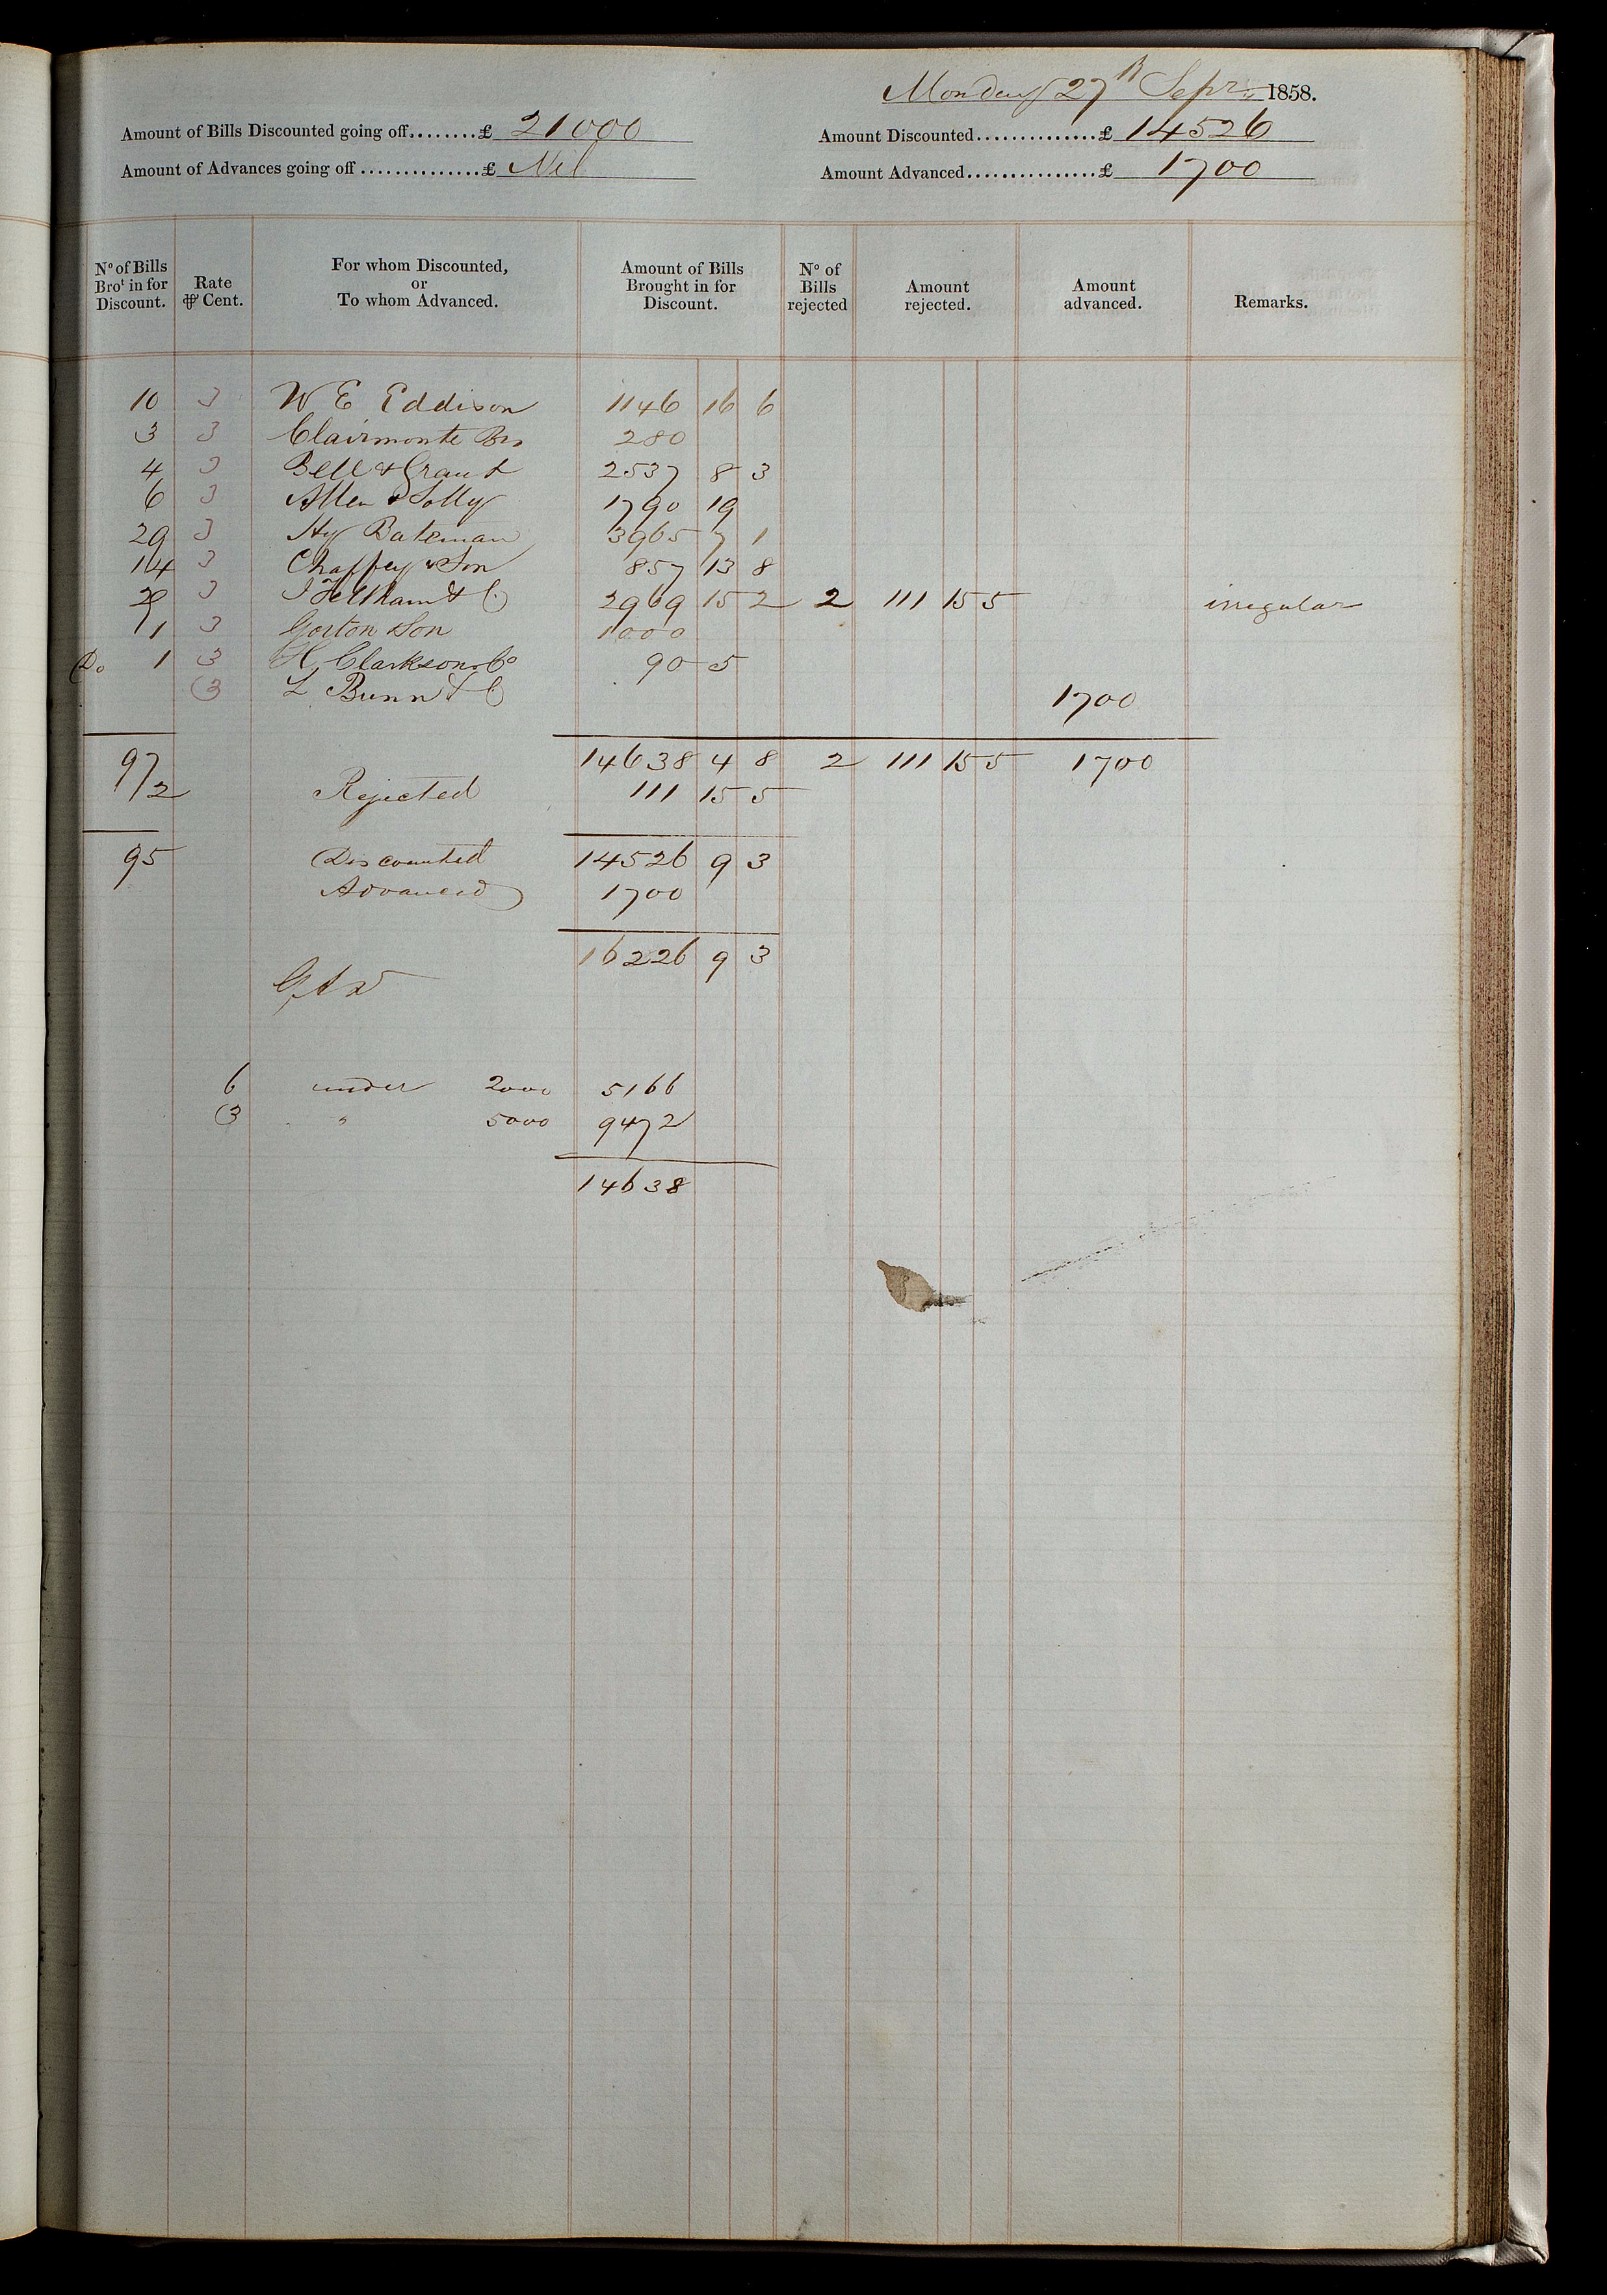 Monday 27th Sepr. 1858.
Amount of Bills Discounted going off........£ 21000 Amount Discounted..............£ 14526
Amount of Advances going off..............£ Nil Amount Advanced...............£ 1700
No of Bills Brot in for Discount. Rate ⅌ Cent. For whom Discounted, or To whom Advanced. Amount of Bills Brought in for Discount. No of Bills rejected Amount rejected. Amount advanced. Remarks.
10 3 W E Eddison 1146 16 6
3 3 Clairmonte Bros 280
4 3 Bell & Grant 2537 8 3
6 3 Allen & Solly 1790 19
29 3 Hy Bateman 3965 7 1
14 3 Chaffey & Son 857 13 8
29 3 J Feltham & Co 2969 15 2 2 111 15 5 irregular
1 3 Gorton & Son 1000
Do 1 3 H. Clarkson & Co 90 5
3 L Bunn & Co 1700
97 14638 4 8 2 111 15 5 1700
2 Rejected 111 15 5
95 Discounted 14526 9 3
Advanced 1700
16226 9 3
6 under 2000 5166
3 " 5000 9472
14638